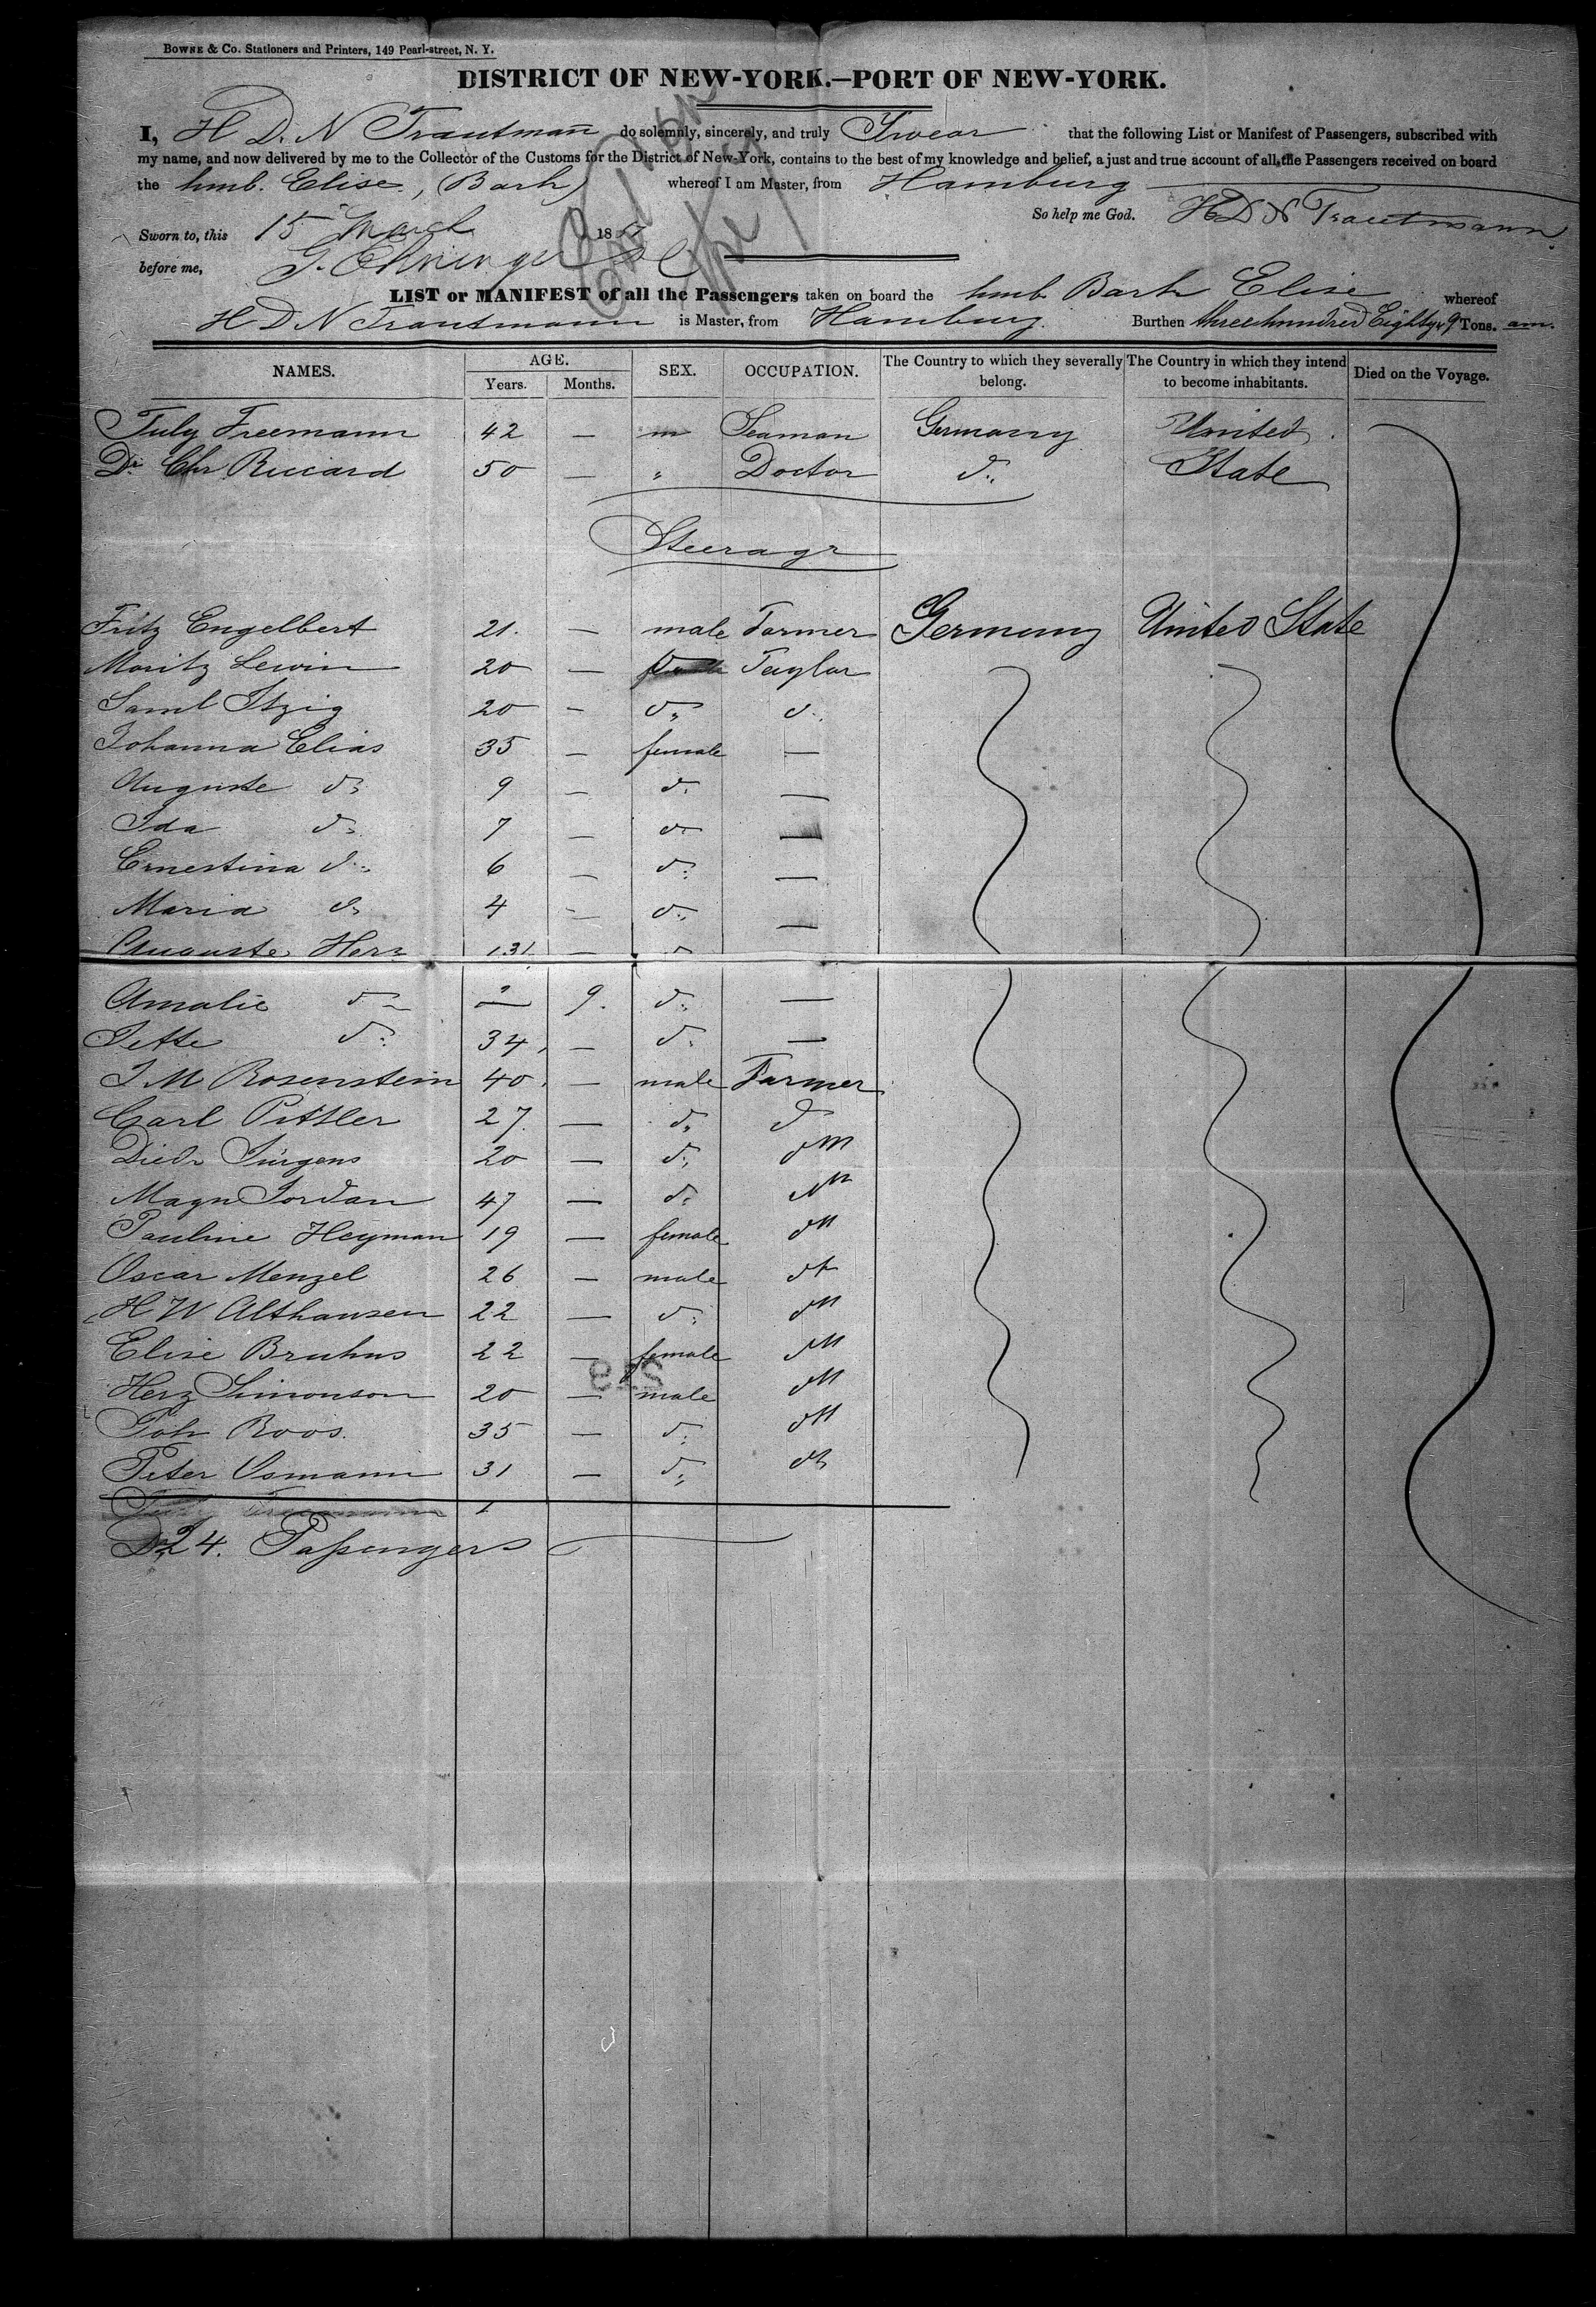 BOWNE & CO. Stationers and Printers, 149 Pearl-street, N. Y.
DISTRICT OF NEW-YORK.—PORT OF NEW-YORK.
I, H. D. N Trautmann do solemnly, sincerely, and truly Swear that the following List or Manifest of Passengers, subscribed with
my name, and now delivered by me to the Collector of the Customs for the District of New-York, contains to the best of my knowledge and belief, a just and true account of all the Passengers received on board
the hmb. Elise, (Bark) whereof I am Master, from Hamburg
So help me God. H D N Trautmann.
Sworn to, this 15 March 18
before me,
LIST or MANIFEST of all the Passengers taken on board the hmb Bark Elise whereof
H D N Trautmann is Master, from Hamburg. Burthen threehundred Eighty 9 Tons. am.
NAMES. AGE. SEX. OCCUPATION. The Country to which they severally belong. The Country in which they intend to become inhabitants. Died on the Voyage.
Years. Months.
July Freemann 42 — m Seaman Germany United
Dr Chr Riccard 50 — " Doctor do. State
Steerage
Fritz Engelbert 21. — male Farmer Germany United State
Moritz Lewin 20 — Taylor
Saml Itzig 20 — do. do.
Johanna Elias 35 — female —
Auguste do. 9 — do. —
Ida do. 7 — do. —
Ernestina do. 6 — do. —
Maria do. 4 — do. —
Auguste Herz — do
Amalie do — 9. do. —
Jette do. 34 — do. —
J. M Rosenstein 40 — male Farmer
Carl Pittler 27. — do. do
Diedr Jürgens 20 — do.
Magn Jordan 47 — do.
Pauline Heyman 19 — female
Oscar Menzel 26 — male
H W Althausen 22 — do.
Elise Bruhns 22 — female
Herz Simonson 20 — male
Joh Roos. 35 — do.
Peter Osmann 31 — do.
24. Passengers